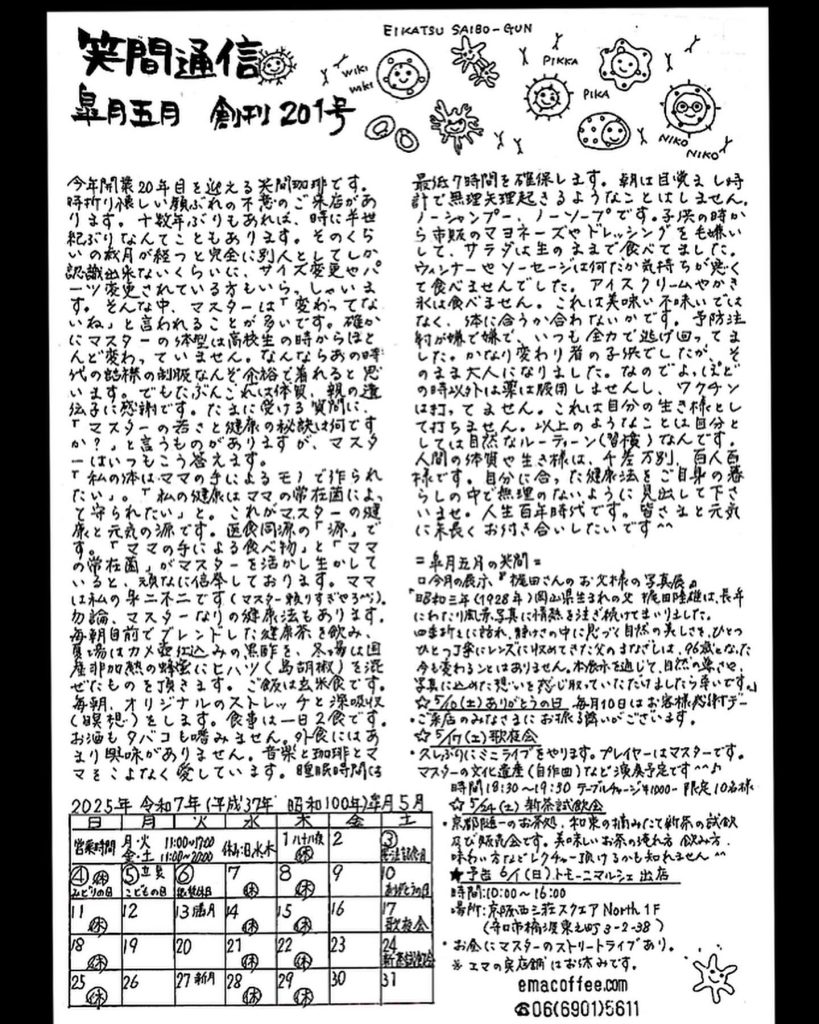 EIKATSU SAIBO-GUN
笑間通信
皐月五月 創刊201号
wiki
wiki
PIKKA
PIKA
NIKO
NIKO
今年開業20年目を迎える笑間珈琲です。
時折り懐しい顔ぶれの不意のご来店があ
ります。十数年ぶりもあれば、時に半世
紀ぶりなんてこともあります。そのくら
いの歳月が経つと完全に別人としてしか
認識出来ないくらいに、サイズ変更やパ
ーツ変更されている方もいらっしゃいま
す。そんな中、マスターは「変わってな
いね」と言われることが多いです。確か
にマスターの体型は高校生の時からほと
んど変わっていません。なんならあの時
代の結構の制服なんぞ余裕で着れると思
います。でもたぶんこれは体質、親の遺
伝子に感謝です。たまに受ける質問に、
「マスターの若さと健康の秘訣は何です
か?」と言うものがありますが、マスタ
ーはいつもこう答えます。
「私の体はママの手によるモノで作られ
たい」。「私の健康はママの常在菌によっ
て守られたい」と。これがマスターの健
康と元気の源です。医食同源の「源」で
す。「ママの手による食べ物」と「ママ
の常在菌」がマスターを活かし生かして
いると、頑なに信奉しております。ママ
は私の身二不二です(マスター頼りすぎやろ^^)。
勿論、マスターなりの健康法もあります。
毎朝自前でブレンドした健康茶を飲み、
夏場はカメ壺仕込みの黒酢を、冬場は国
産非加熱の蜂蜜にヒハツ(島胡椒)を混
ぜたものを頂きます。ご飯は玄米食です。
毎朝、オリジナルのストレッチと深呼吸
(瞑想)をします。食事は一日2食です。
お酒もタバコも嗜みません。外食にはあ
まり興味がありません。音楽と珈琲とマ
マをこよなく愛しています。睡眠時間は
最低7時間を確保します。朝は目覚まし時
計で無理矢理起きるようなことはしません。
ノーシャンプー、ノーソープです。子供の時か
ら市販のマヨネーズやドレッシングを毛嫌い
して、サラダは生のままで食べてました。
ウィンナーやソーセージは何だか気持ちが悪く
て食べませんでした。アイスクリームやかき
氷は食べません。これは美味い不味いでは
なく、体に合うか合わないかです。予防注
射が嫌で嫌で、いつも全力で逃げ回ってま
した。かなり変わり者の子供でしたが、そ
のまま大人になりました。なのでよっぽど
の時以外は薬は服用しませんし、ワクチン
は打ってません。これは自分の生き様とし
て打ちません。以上のようなことは自分と
しては自然なルーティーン(習慣)なんです。
人間の体質や生き様は、千差万別、百人百
様です。自分に合った健康法をご自身の暮
らしの中で無理のないように見出して下さ
いませ。人生百年時代です。皆さまと元気
に末長くお付き合いしたいです^^
=皐月五月の笑間=
□今月の展示『梶田さんのお父様の写真展』
「昭和三年(1928年)岡山県生まれの父 梶田陸雄は、長年
にわたり風景写真に情熱を注ぎ続けてまいりました。
四季折々に訪れ、静けさの中に息づく自然の美しさを、ひとつ
ひとつ丁寧にレンズに収めてきた父のまなざしは、96歳となった
今も変わることはありません。本展示を通じて、自然の尊さや、
写真に込めた想いを感じ取っていただけましたら幸いです。」
☆5/10(土)ありがとうの日 毎月10日はお客様感謝デー
・ご来店のみなさまにお振る舞いがございます。
☆5/17(土)歌夜会
・久しぶりにミニライブをやります。プレイヤーはマスターです。
マスターの文化遺産(自作曲)などを演奏予定です^^♪
時間18:30~19:30 テーブルチャージ¥1000- 限定10名様
☆5/24(土)新茶試飲会
・京都随一のお茶処、和束の摘みたて新茶の試飲
及び販売会です。美味しいお茶の淹れ方、飲み方、
味わい方などレクチャー頂けるかも知れません^^
★予告 6/1(日)トモーニマルシェ出店
時間:10:00~16:00
場所:京阪西三荘スクエア North 1F
(守口市橋波東之町3-2-38)
・お昼にマスターのストリートライブあり。
※エマの実店舗はお休みです。
emacoffee.com
☎06(6901)5611
2025年 令和7年(平成37年 昭和100年)皐月5月
日 月 火 水 木 金 土
営業時間 月・火 11:00~17:00 金・土 11:00~20:00 休み:日水木 1 八十八夜 (休) 2 ③ 憲法記念日
④ (休) みどりの日 ⑤ 立夏 こどもの日 ⑥ 振替休日 7 (休) 8 (休) 9 10 ありがとうの日
11 (休) 12 13 満月 14 (休) 15 (休) 16 17 歌夜会
18 (休) 19 20 21 (休) 22 (休) 23 24 新茶試飲会
25 (休) 26 27 新月 28 (休) 29 (休) 30 31